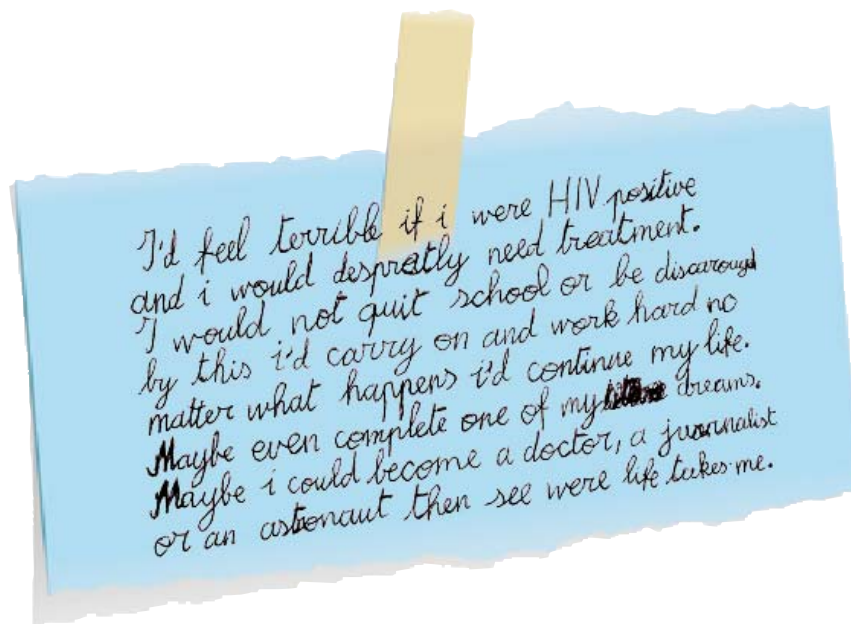 I'd feel terrible if i were HIV positive
and i would despratly need treatment.
I would not quit school or be discarougd
by this i'd carry on and work hard no
matter what happens i'd continue my life.
Maybe even complete one of my dreams.
Maybe i could become a doctor, a journalist
or an astronaut then see were life takes me.